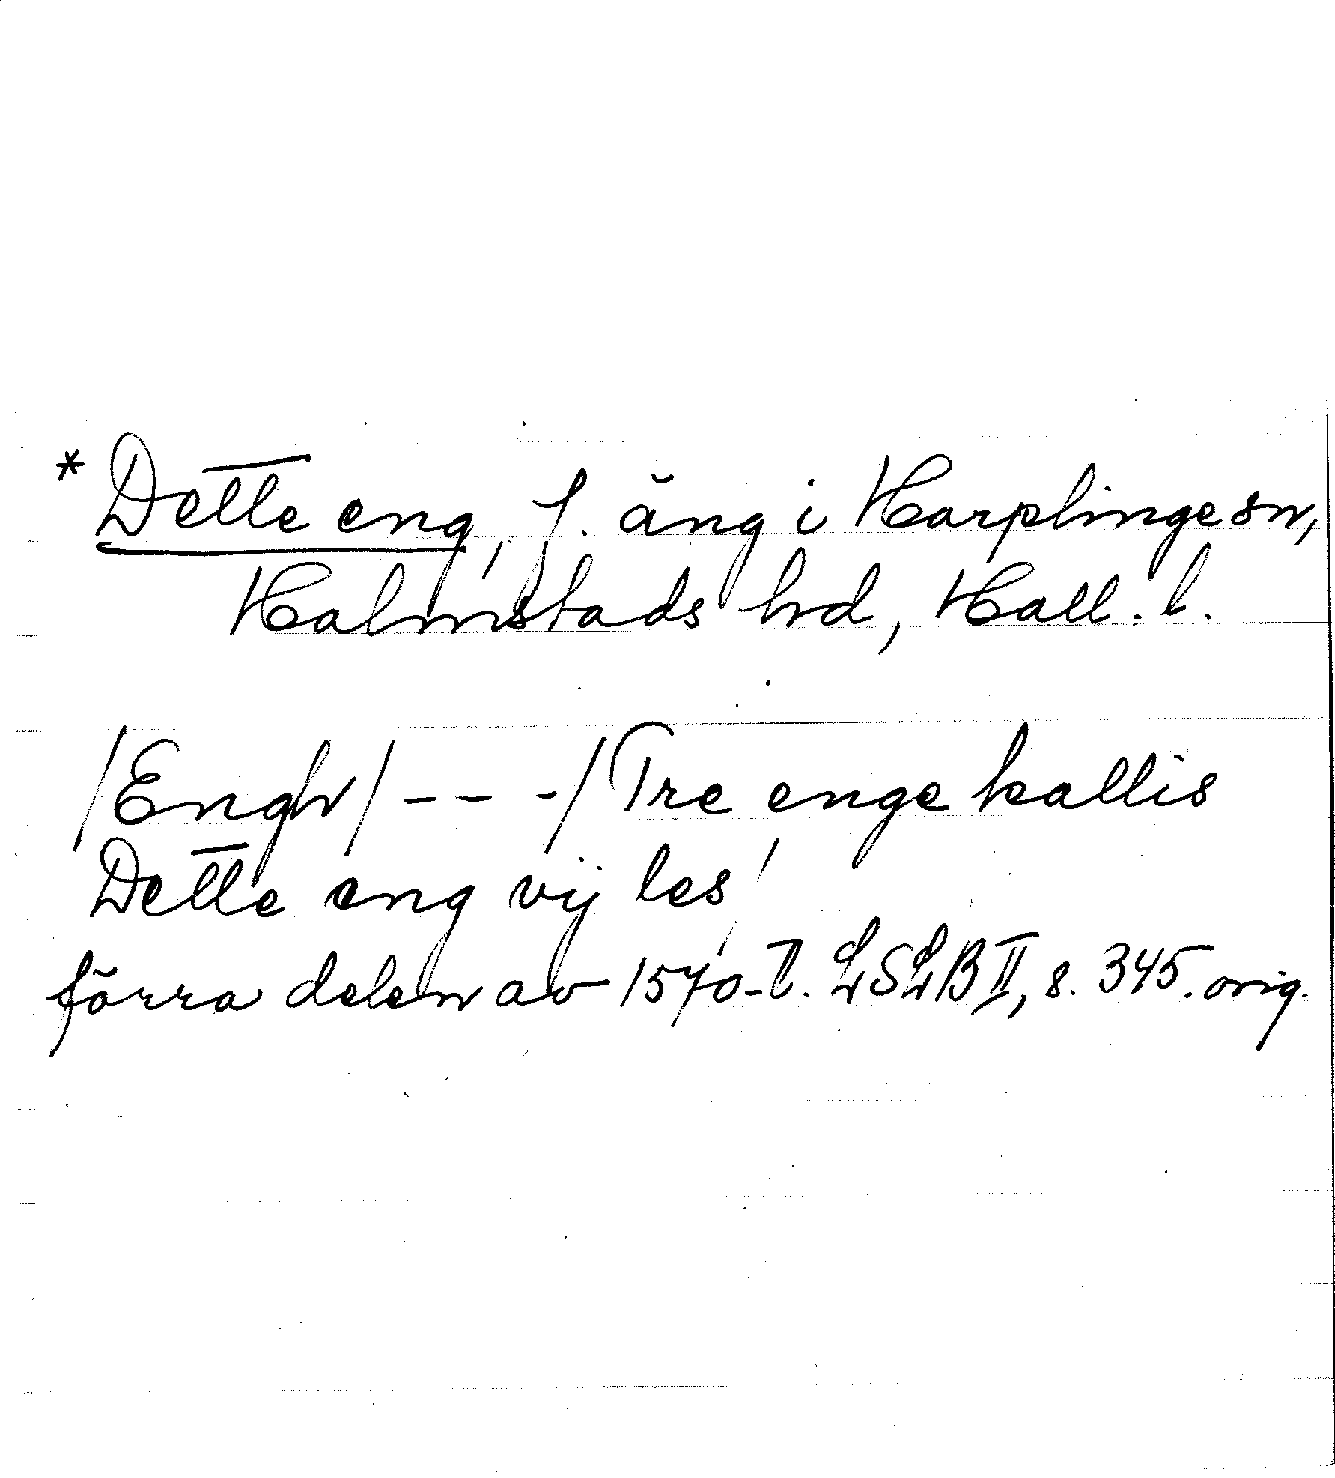 *Dette eng, f. äng i Harplinge sn,
Halmstads hd, Hall. l.
/Engh/ - - - / Tre enge kallis
Dette eng vij les /
förra delen av 1570-t. LSLB II, s. 345. orig.